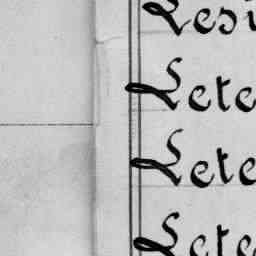 Lesi
Lete
Lete
Lete